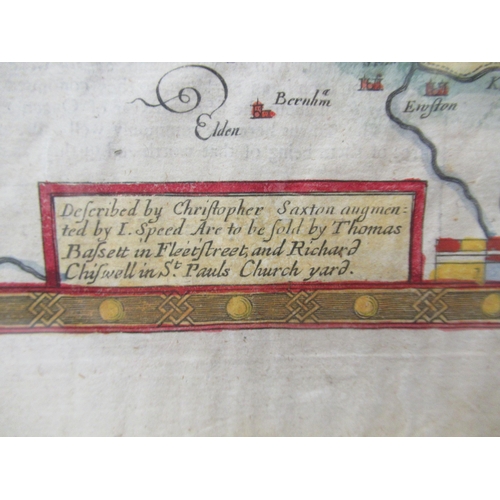 Bernhm̃
Elden
Ewston
K
Deſcribed by Chriſtopher Saxton augmen-
ted by I. Speed Are to be ſold by Thomas
Baſsett in Fleetſtreet, and Richard
Chiſwell in St. Pauls Church yard.